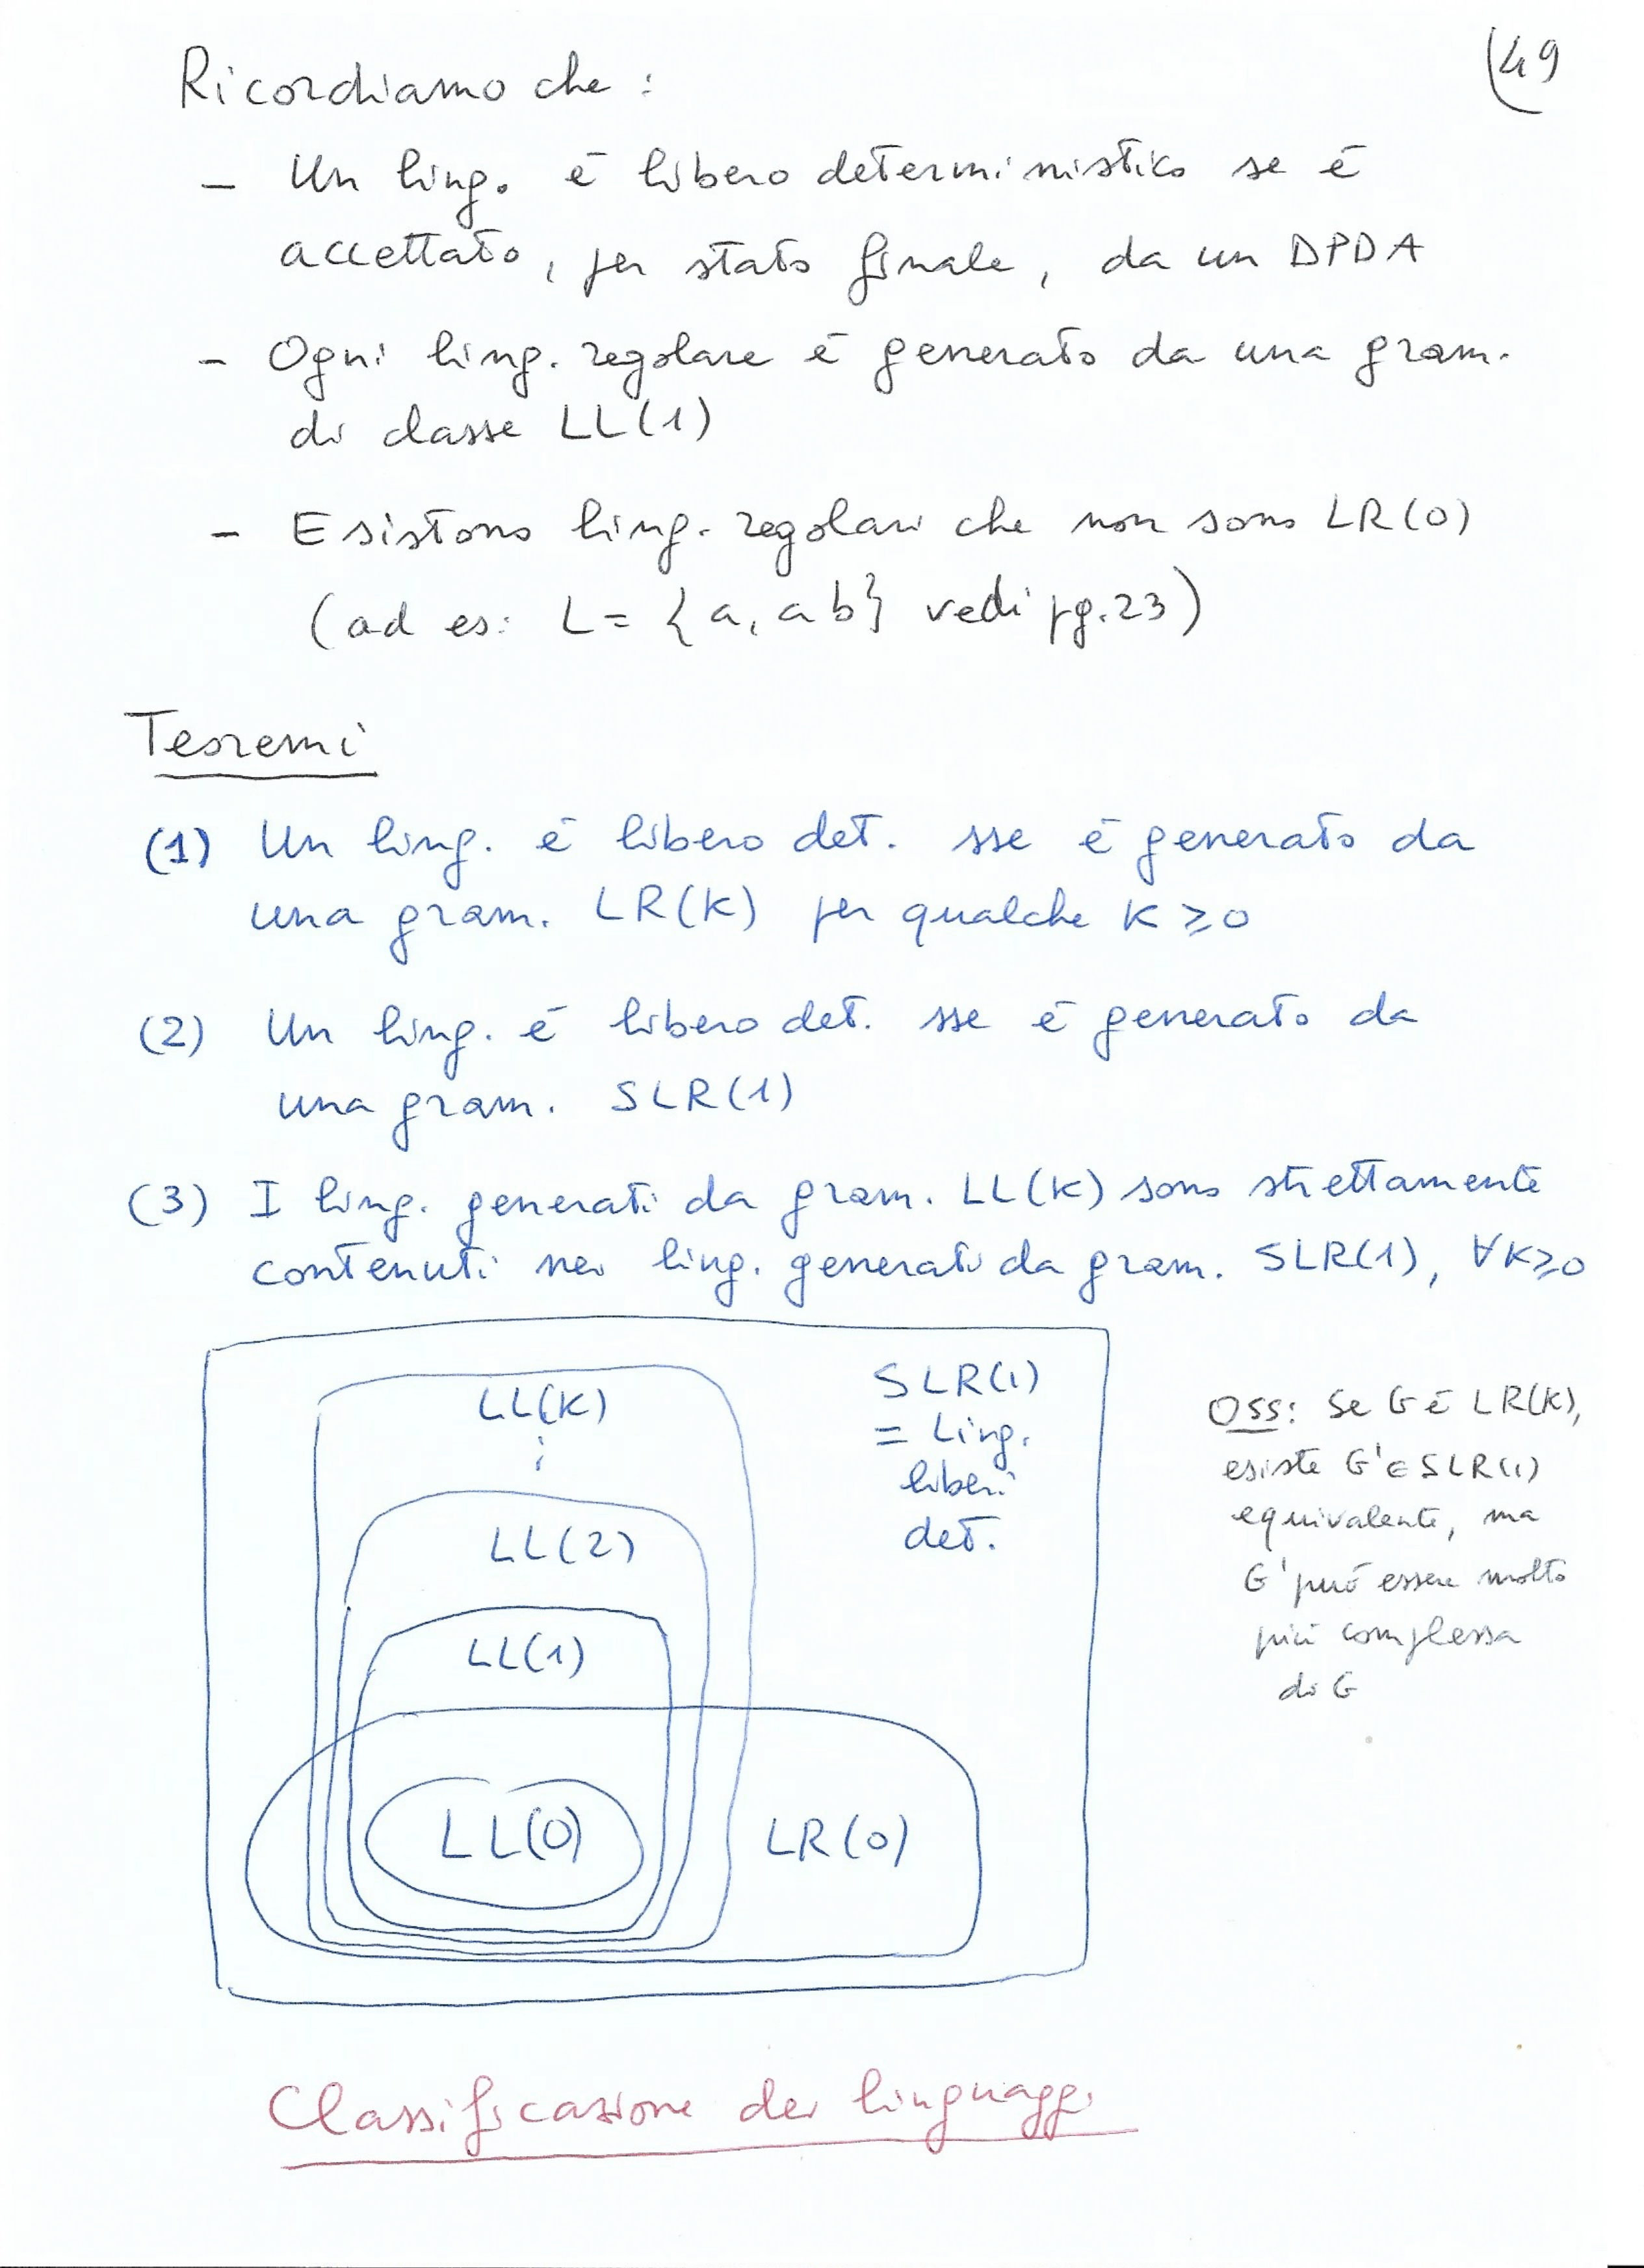 (49
Ricordiamo che :
- Un ling. è libero deterministico se è
accettato, per stato finale, da un DPDA
- Ogni ling. regolare è generato da una gram.
di classe LL(1)
- Esistono ling. regolari che non sono LR(0)
(ad es: L = {a, ab} vedi pg. 23)
Teoremi
(1) Un ling. è libero det. sse è generato da
una gram. LR(K) per qualche K ≥ 0
(2) Un ling. è libero det. sse è generato da
una gram. SLR(1)
(3) I ling. generati da gram. LL(K) sono strettamente
contenuti nei ling. generati da gram. SLR(1), ∀K≥0
LL(K)
⋮
LL(2)
LL(1)
LL(0)
LR(0)
SLR(1)
= Ling.
liberi
det.
Oss: Se G è LR(K),
esiste G' ∈ SLR(1)
equivalente, ma
G' può essere molto
più complessa
di G
Classificazione dei linguaggi